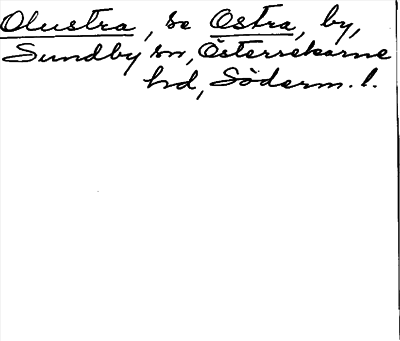 Olustra, se Ostra, by,
Sundby sn, Österrekarne
hd, Söderm. l.